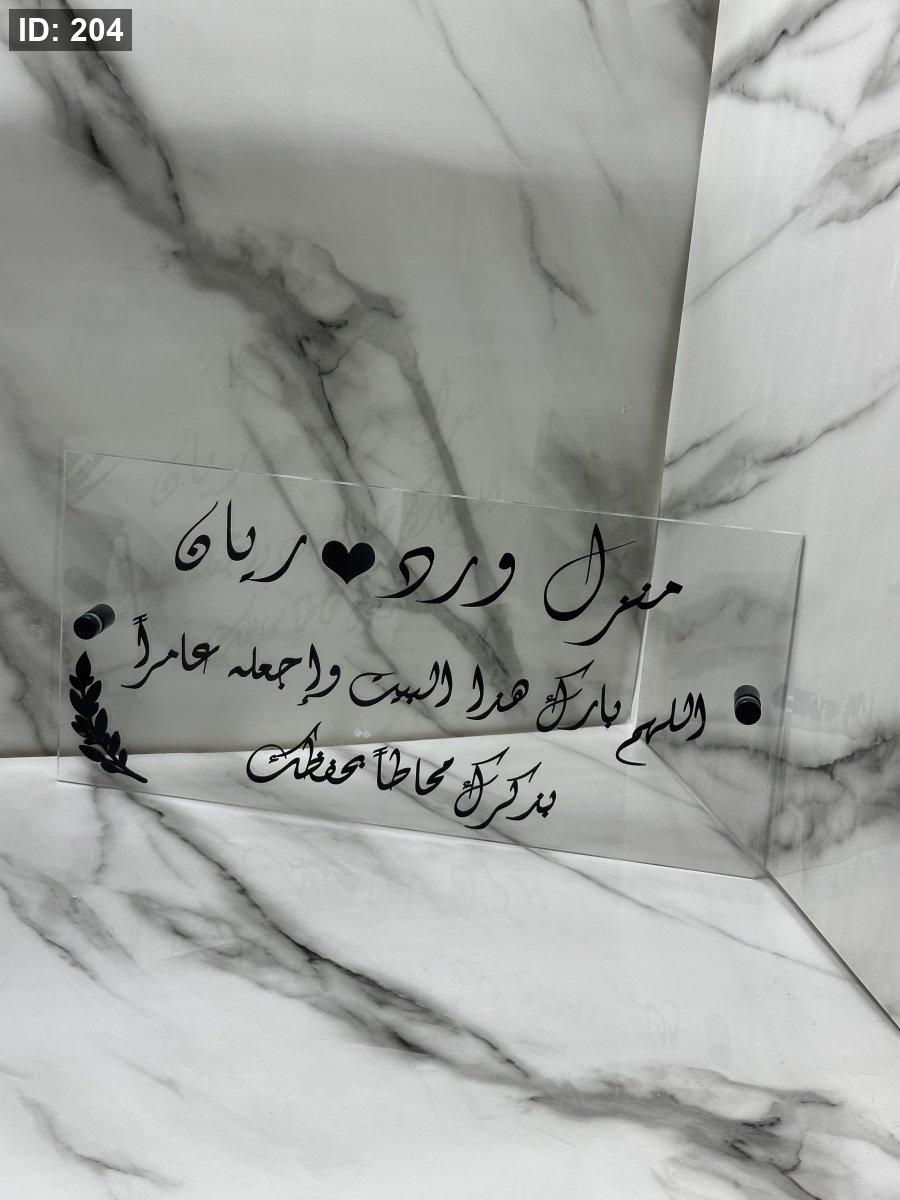 ID: 204
منزل ورد ❤ ريان
اللهم بارك هدا البيت وإجعله عامراً
بدكرك محاطاً بحفظك